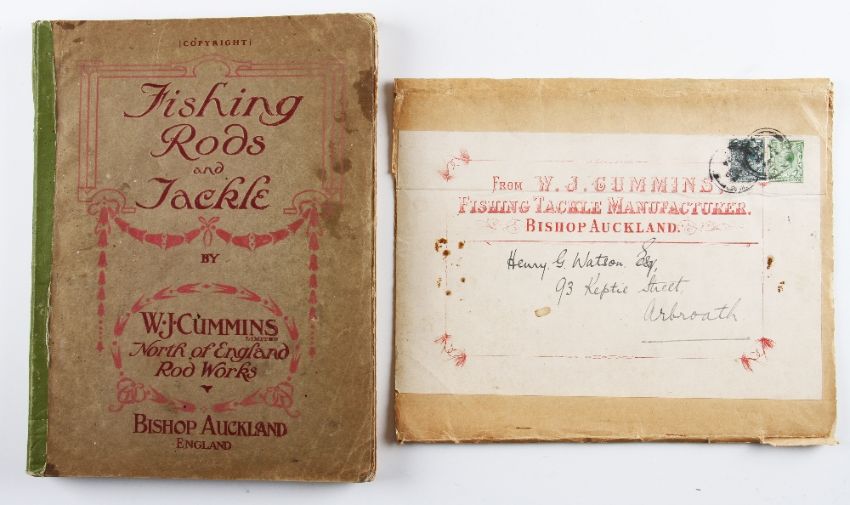 [COPYRIGHT]
Fishing
Rods
and
Tackle
BY
W.J.CUMMINS
LIMITED
North of England
Rod Works
BISHOP AUCKLAND
ENGLAND
FROM W. J. CUMMINS,
FISHING TACKLE MANUFACTURER.
BISHOP AUCKLAND.
Henry G. Watson Esq,
93 Keptie Street
Arbroath